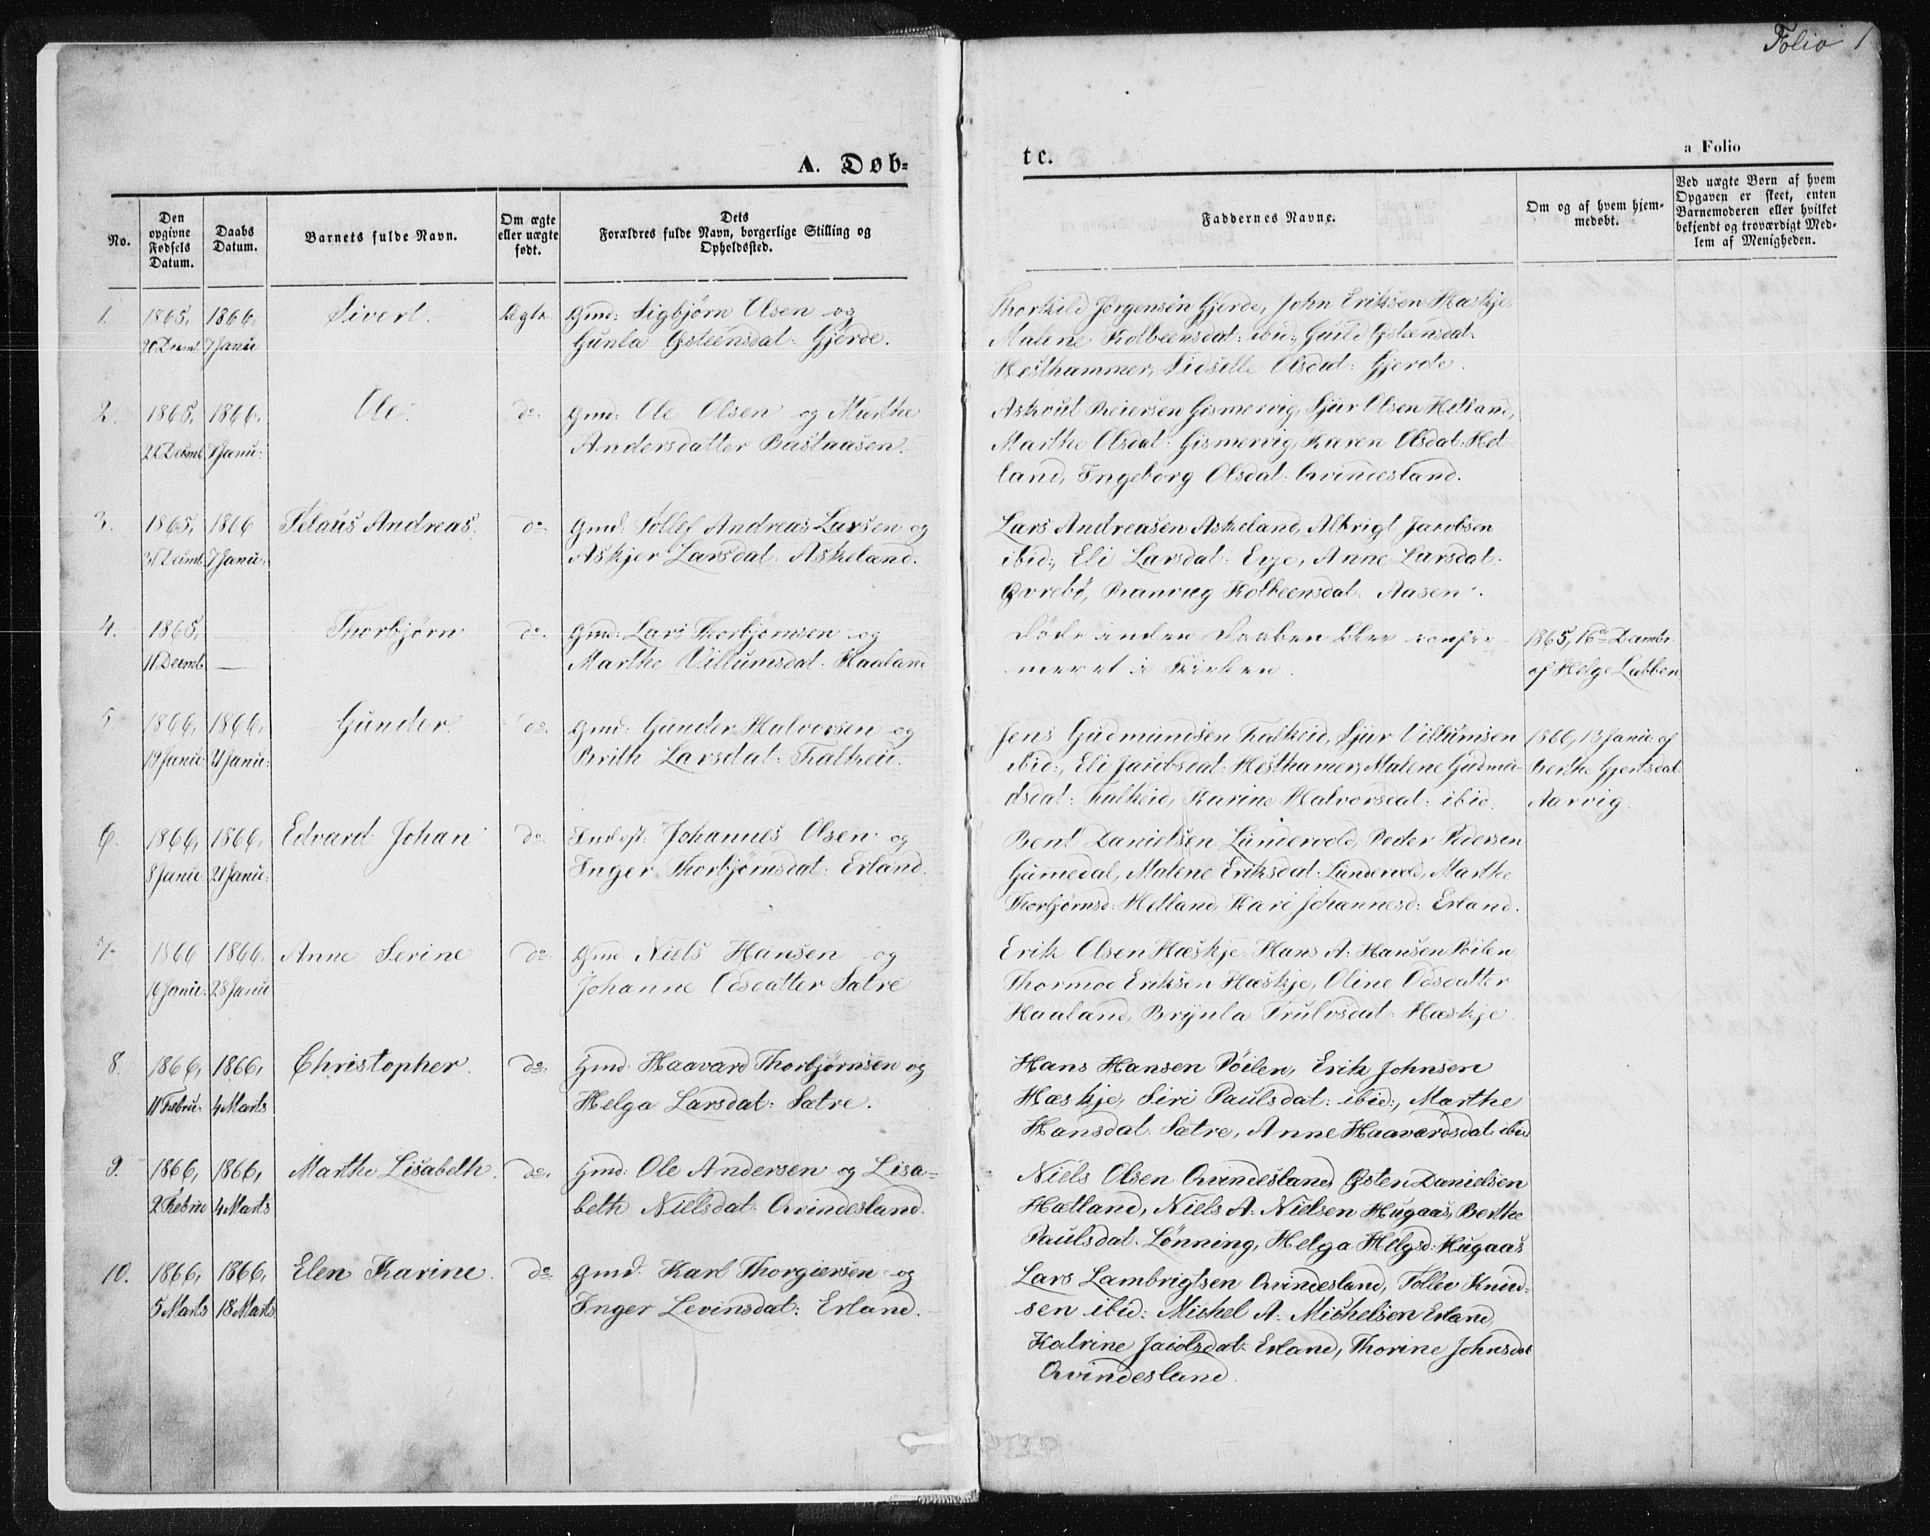 Folio 1
A. Døb=
te.
a Folio
No.
Den opgivne Fødsels Datum.
Daabs Datum.
Barnets fulde Navn.
Om ægte eller uægte født.
Dets Forældres fulde Navn, borgerlige Stilling og Opholdssted.
Faddernes Navne.
Om og af hvem hjem-medøbt.
Ved uægte Børn af hvem Opgaven er skeet, enten Barnemoderen eller hvilket bekjendt og troværdigt Med-lem af Menigheden.
1. 1865, 1866, Sivert. Ægte. Gmd: Sigbjørn Olsen og
20 Decmb 7 Janu Gunla Østeensdat: Gjerde.
Thorkild Jørgensen Gjerde, John Eriksen Hæskje
Malene Kolbeensdat: ibid:, Gurid Østensdat:
Hesthammer, Sidselle Olsdat: Gjerde.
2. 1865, 1866, Ole. do. Gmd: Ole Olsen og Marthe
Decmb Janu: Andersdatter Bastaasen.
Askout Reiersen Gismervig, Sjur Olsen Hetland,
Marthe Olsdat: Gismervig, Karen Olsdat: Het-
land, Ingeborg Olsdat: Qvindesland.
3. 1865, 1866 Selaus Andreas. do Gmd. Tollef Andreas Larsen og
31 Decmb. 7 Janu: Askjer Larsdat: Askeland.
Lars Andreasen Askeland, Albrigt Jacobsen
ibid:, Eli Larsdat: Eye, Anne Larsdat:
Øvrebø, Ranvæg Kolbeensdat: Aasen.
4. 1865, Thorbjørn do. Gmd: Lars Thorbjørnsen og
11 Decmb — Marthe Villumsdat: Haaland
Døde inden Daaben blev confir-
meret i Kirken.
1865, 16de Decmbr
af Helge Labben
5 1866, 1866, Gunder. do. Gmd: Gunder Halvorsen og
Janu: 21 Janu: Brith Larsdat: Falkeid.
Jens Gudmundsen Falkeid, Sjur Villumsen
ibid:, Eli Jacobsdat: Hesthamer, Malene Gudmu-
dsdat: Falkeid, Karine Halvorsdat: ibid.
1866, 13 Janu: af
Berthe Gjertsdat
Aarvig.
6. 1866, 1866, Edvard Johan do. Indst: Johannes Olsen og
8 Janu 21 Janu: Inger Thorbjørnsdat: Erland.
Bent Danielsen Lundervold, Peder Pedersen
Gumedal, Malene Eriksdat: Lundervold, Marthe
Thorbjørnsd: Hetland, Kari Johannesd: Erland.
7. 1866 1866, Anne Serine do. Gmd Niels Hansen og
16 Janu: 28 Janu Johanne Odsdatter Sætre
Erik Olsen Hæskje, Hans A: Hansen Pöilen
Thormod Eriksen Hæskje, Oline Odsdatter
Haaland, Brynla Trulvsdat: Hæskje.
8. 1866, 1866, Christopher. do. Gmd: Haavard Thorbjørnsen og
11 Febru: 4 Marts Helga Larsdat: Sætre.
Hans Hansen Pöilen, Erik Johnsen
Hæskje, Siri Paulsdat: ibid:, Marthe
Hansdat: Sætre, Anne Haavardsdat: ibid
9. 1866, 1866, Marthe Lisabeth. do. Gmd: Ole Andersen og Lisa-
2 Febru 4 Marts beth Nielsdat: Qvindesland.
Niels Olsen Qvindesland, Østen Danielsen
Hætland, Niels A: Nielsen Hugaas, Berthe
Paulsdat: Lønning, Helga Helgsd: Hugaas
10. 1866, 1866, Elen Karine. do. Gmd. Karl Thorgiersen og
5 Marts 18 Marts Inger Levinsdat: Erland.
Lars Lambrigtsen Qvindesland, Tollev Knud-
sen ibid: Michel A: Michelsen Erland,
Katrine Jacobsdat: Erland, Thorine Johnsdat
Qvindesland.